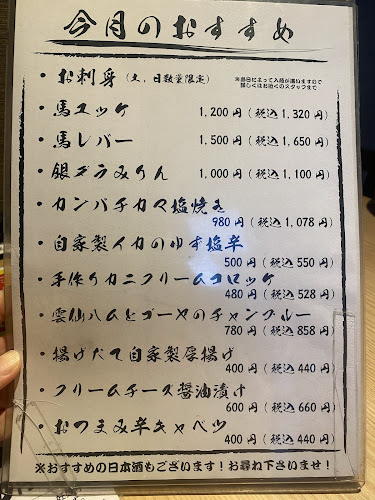 今月のおすすめ
・お刺身(土、日数量限定) ※当日によって入荷が違いますので
詳しくはお近くのスタッフまで
・馬ユッケ 1,200円(税込1,320円)
・馬レバー 1,500円(税込1,650円)
・銀ダラみりん 1,000円(税込1,100円)
・カンパチカマ塩焼き
980円(税込1,078円)
・自家製イカのゆず塩辛
500円(税込550円)
・手作りカニクリームコロッケ
480円(税込528円)
・雲仙ハムとゴーヤのチャンプルー
780円(税込858円)
・揚げたて自家製厚揚げ
400円(税込440円)
・クリームチーズ醤油漬け
600円(税込660円)
・おつまみ辛キャベツ
400円(税込440円)
※おすすめの日本酒もございます!お尋ね下さいませ!